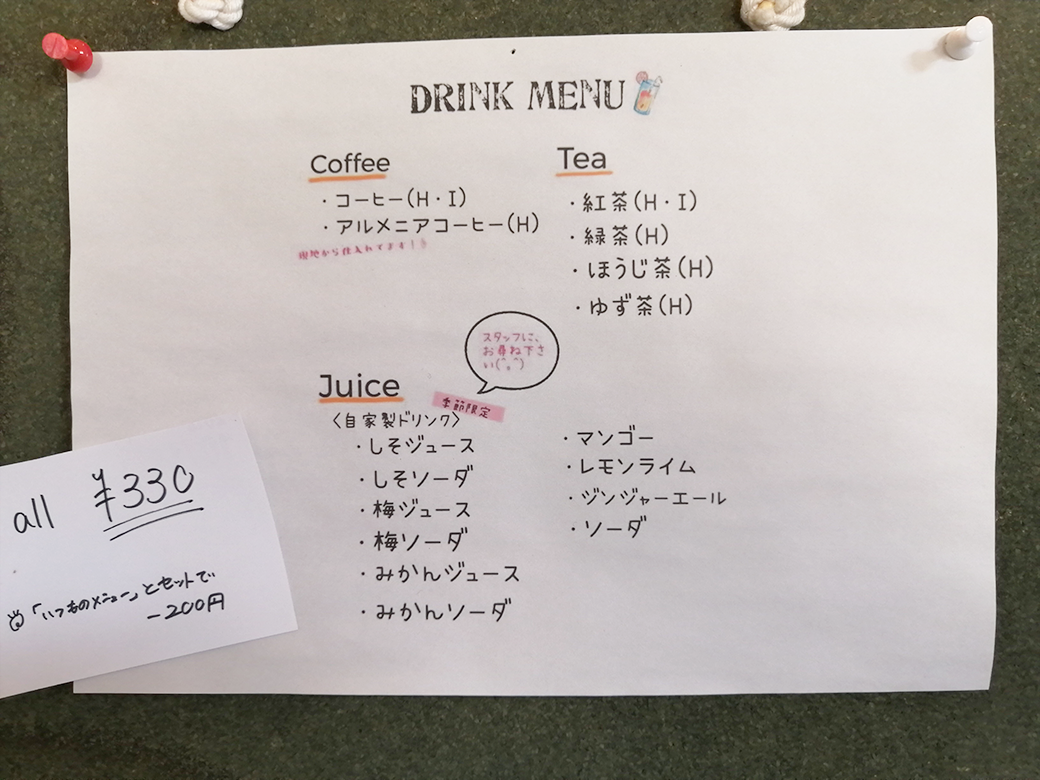 DRINK MENU
Coffee
・コーヒー(H・I)
・アルメニアコーヒー(H)
現地から仕入れてます!
Tea
・紅茶(H・I)
・緑茶(H)
・ほうじ茶(H)
・ゆず茶(H)
スタッフに、
お尋ね下さ
い(^。^)
Juice
季節限定
〈自家製ドリンク〉
・しそジュース
・しそソーダ
・梅ジュース
・梅ソーダ
・みかんジュース
・みかんソーダ
・マンゴー
・レモンライム
・ジンジャーエール
・ソーダ
all ¥330
「いつものメニュー」とセットで
-200円